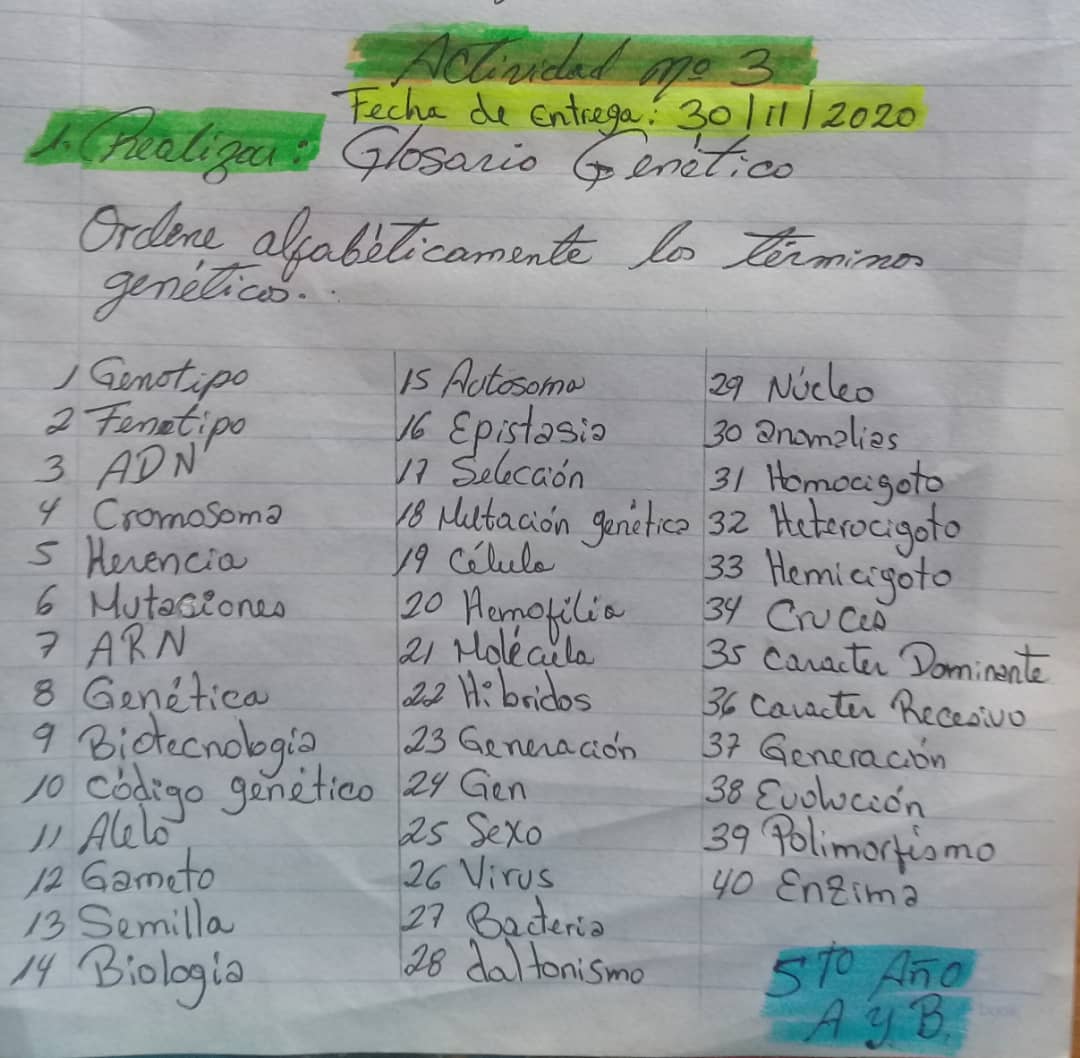 Actividad nº 3
Fecha de Entrega: 30/11/2020
1. Realizar: Glosario Genético
Ordene alfabéticamente los términos
genéticos...
1 Genotipo
2 Fenotipo
3 ADN
4 Cromosoma
5 Herencia
6 Mutaciones
7 ARN
8 Genética
9 Biotecnología
10 Código genético
11 Alelo
12 Gameto
13 Semilla
14 Biología
15 Autosoma
16 Epistasia
17 Selección
18 Mutación genética
19 Célula
20 Hemofilia
21 Molécula
22 Híbridos
23 Generación
24 Gen
25 Sexo
26 Virus
27 Bacteria
28 daltonismo
29 Núcleo
30 anomalías
31 Homocigoto
32 Heterocigoto
33 Hemicigoto
34 Cruces
35 Caracter Dominante
36 Caracter Recesivo
37 Generación
38 Evolución
39 Polimorfismo
40 Enzima
5to Año
A y B.